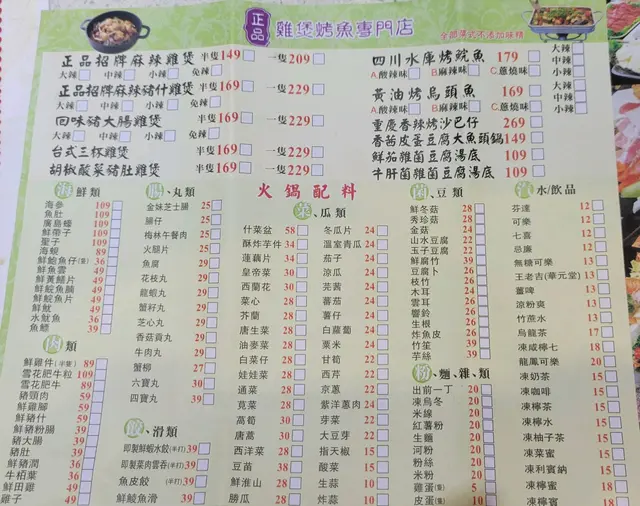 正品 雞煲烤魚專門店
全部湯式不添加味精
正品招牌麻辣雞煲 半隻149 一隻209
大辣 中辣 小辣 免辣
正品招牌麻辣豬什雞煲 半隻169 一隻229
大辣 中辣 小辣 免辣
回味豬大腸雞煲 半隻169 一隻229
大辣 中辣 小辣 免辣
台式三杯雞煲 半隻169 一隻229
胡椒酸菜豬肚雞煲 半隻169 一隻229
四川水庫烤鯇魚 179 大辣
A酸辣味 B麻辣味 C蔥燒味 中辣
小辣
黃油烤烏頭魚 169 大辣
A酸辣味 B麻辣味 C蔥燒味 中辣
小辣
重慶香辣烤沙巴仔 269
香茜皮蛋豆腐大魚頭鍋 149
鮮茄雜菌豆腐湯底 109
牛肝菌雜菌豆腐湯底 109
火鍋配料
海鮮類
海參 109
魚肚 109
廣島蠔 109
鮮帶子 109
聖子 109
海螺 89
鮮鮑魚仔(隻) 36
鮮魚雲 49
鮮黃鱔片 49
鮮鯇魚腩 49
鮮鯇魚片 49
鮮魷 49
水魷魚 36
魚鰾 39
肉類
鮮雞件(半隻) 89
雪花肥牛粒 109
雪花肥牛 89
豬頸肉 59
鮮雞腳 59
鮮豬什 59
鮮豬粉腸 49
豬大腸 39
豬肚 39
鮮豬潤 36
牛栢葉 36
鮮田雞 49
雞子 49
腸、丸類
金妹芝士腸 25
腸仔 25
梅林午餐肉 25
火腿片 25
魚腐 29
花枝丸 29
龍蝦丸 29
蟹籽丸 29
芝心丸 29
香菇貢丸 29
牛肉丸 29
蟹柳 27
六寶丸 30
四寶丸 39
餃、滑類
即製鮮蝦水餃(半打) 39
即製菜肉雲吞(半打) 39
魚皮餃 (半打) 39
鮮鯪魚滑 39
菜、瓜類
什菜盆 58
酥炸芋件 34
蓮藕片 34
皇帝菜 30
西蘭花 30
菜心 28
芥蘭 28
唐生菜 28
油麥菜 28
白菜仔 28
娃娃菜 28
通菜 28
莧菜 28
茼筍 30
唐蒿 30
西洋菜 28
豆苗 38
鮮淮山 28
勝瓜 28
冬瓜片 24
溫室青瓜 24
茄子 24
涼瓜 24
芫茜 24
蕃茄 24
薯仔 24
白蘿蔔 24
粟米 24
甘筍 22
西芹 22
京蔥 22
紫洋蔥肉 24
芽菜 22
大豆芽 22
指天椒 15
酸菜 15
生蒜 10
炸蒜 10
菌、豆類
鮮冬菇 28
秀珍菇 28
金菇 24
山水豆腐 22
玉子豆腐 22
鮮腐竹 39
豆腐卜 26
枝竹 26
木耳 24
雲耳 26
響鈴 26
生根 26
炸魚皮 26
竹笙 39
芋絲 39
粉、麵、雜、類
出前一丁 20
凍烏冬 20
米線 20
紅薯粉 20
生麵 20
河粉 20
粉絲 20
米粉 20
雞蛋(隻) 5
皮蛋(隻) 10
汽水/飲品
芬達 12
可樂 12
七喜 12
忌廉 12
無糖可樂 13
王老吉(華元堂) 13
薑啤 13
涼粉爽 13
竹蔗水 13
烏龍茶 17
凍咸檸七 18
龍鳳可樂 20
凍奶茶 15
凍咖啡 15
凍檸茶 15
凍檸水 15
凍柚子茶 15
凍菜蜜 15
凍利賓納 15
凍檸蜜 18
凍檸賓 18